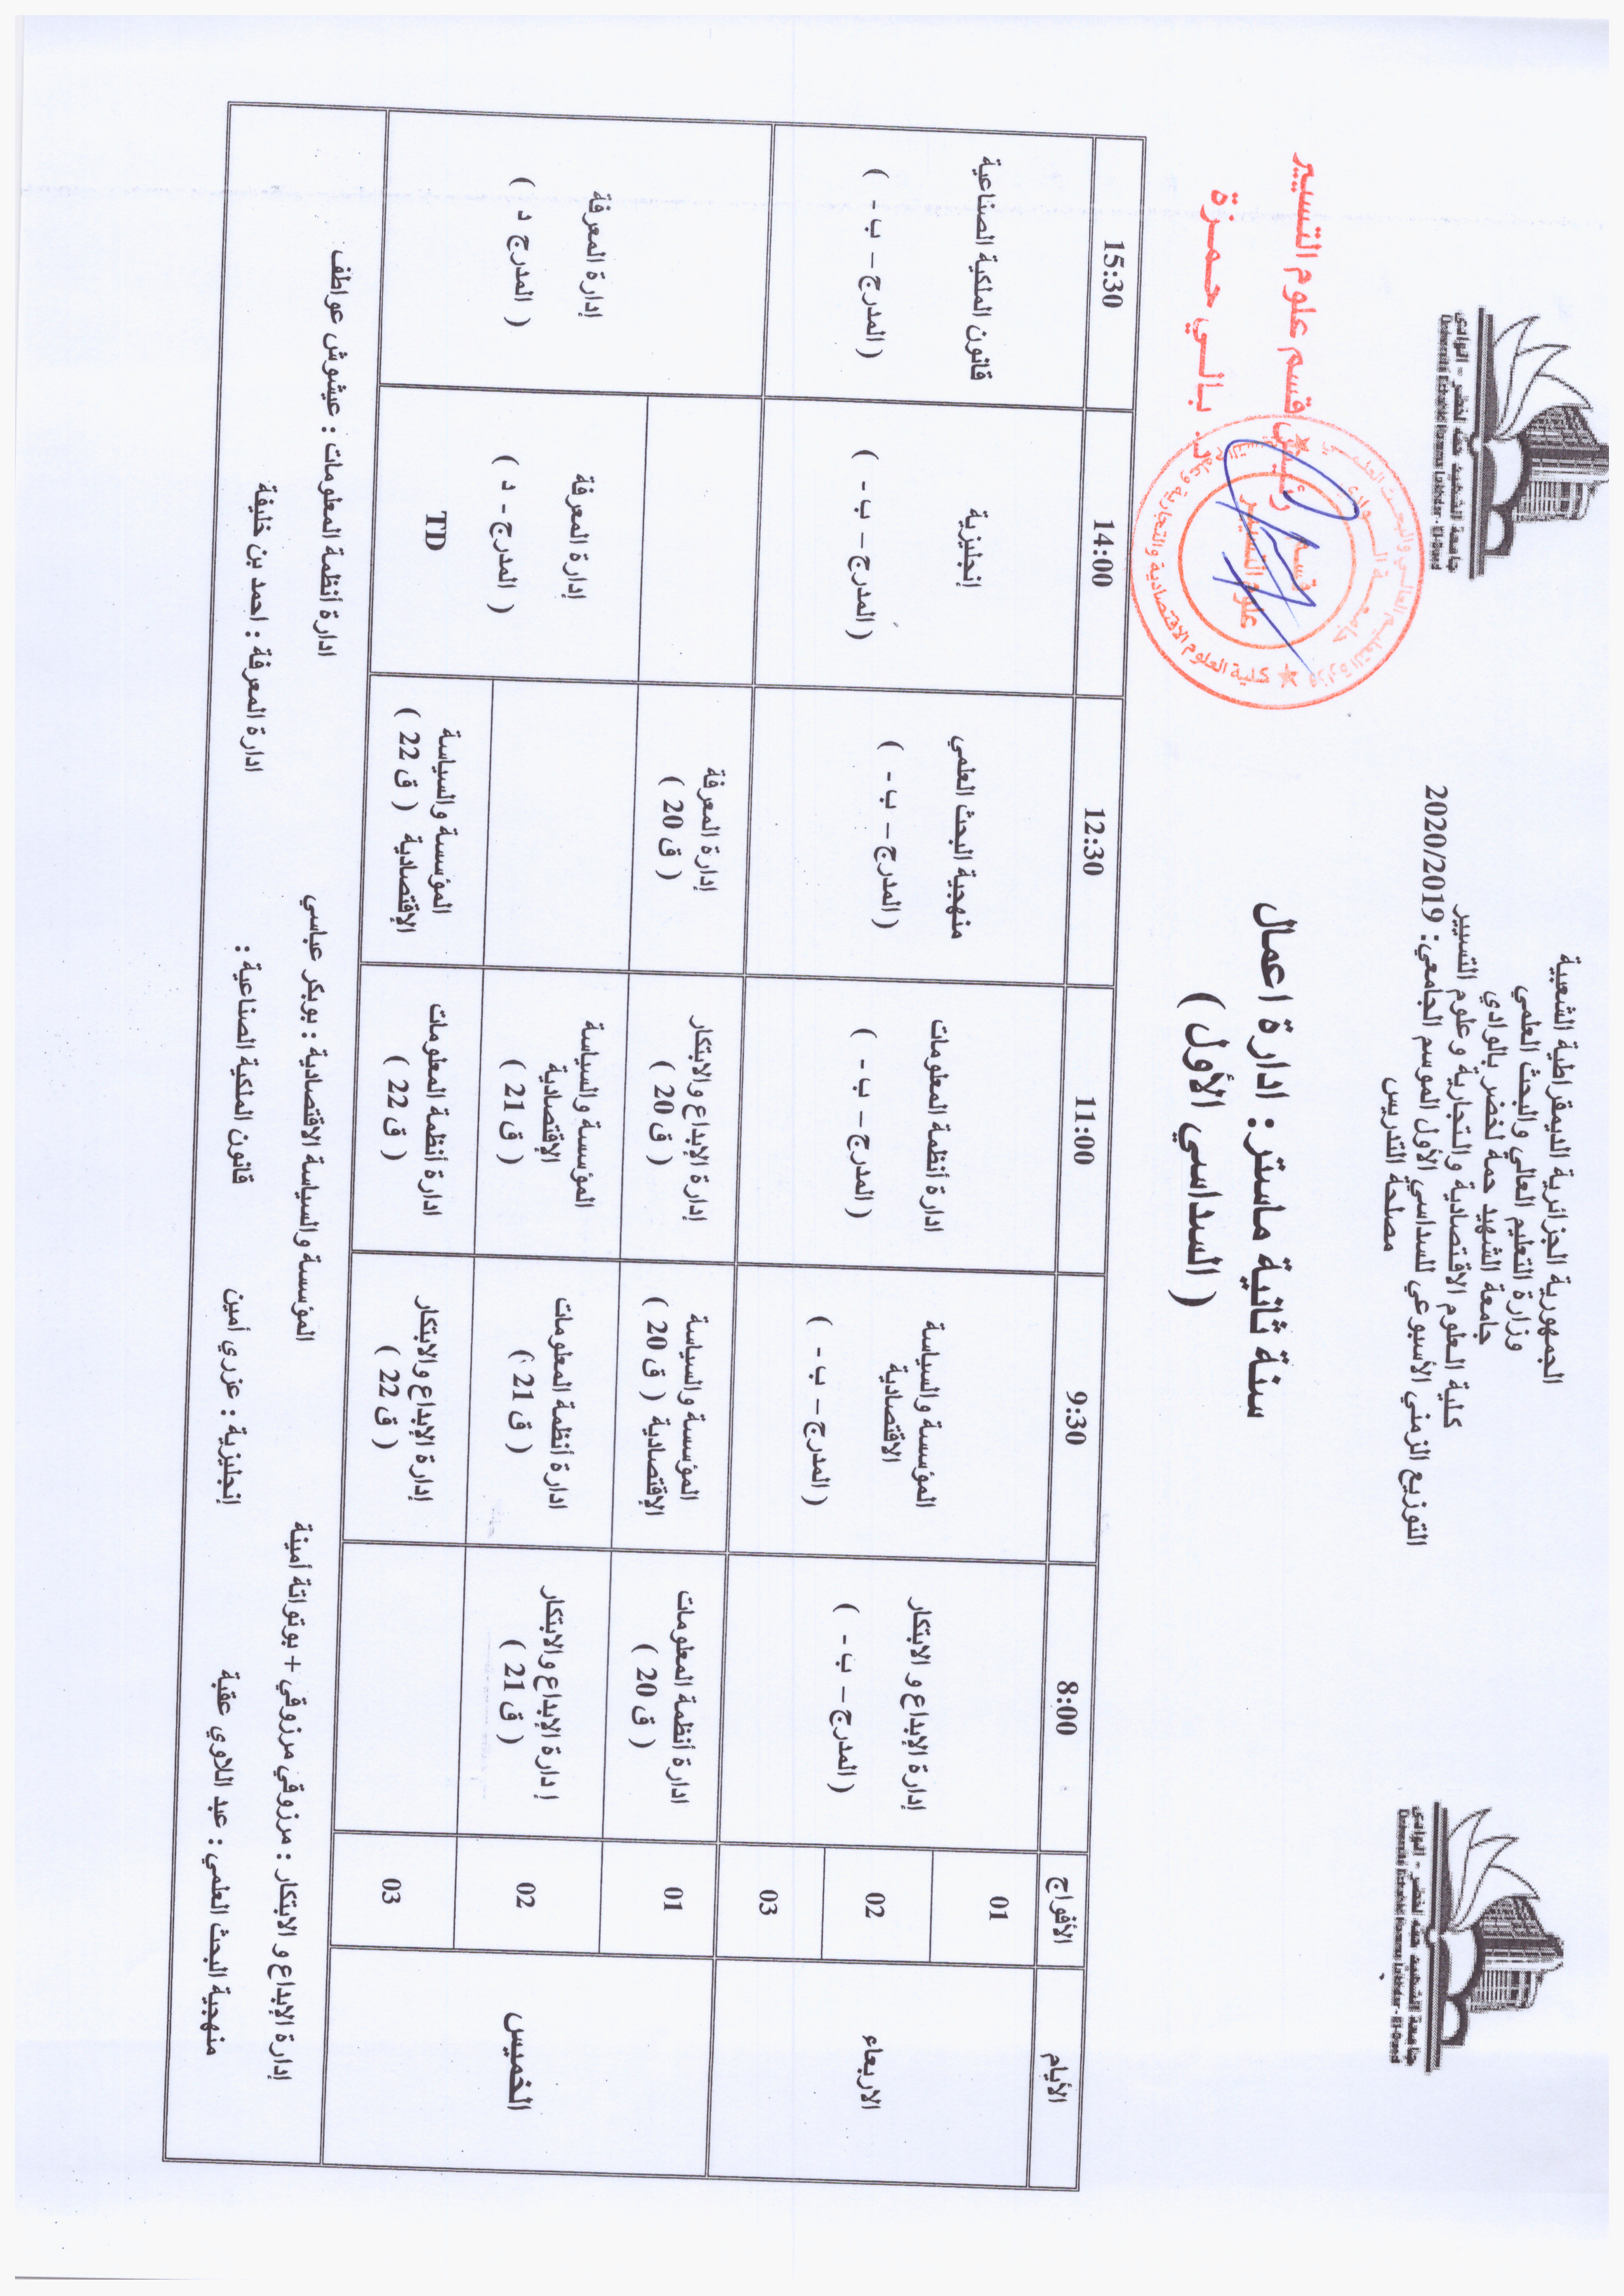 الجمهورية الجزائرية الديمقراطية الشعبية
وزارة التعليم العالي والبحث العلمي
جامعة الشهيد حمه لخضر بالوادي
كلية العلوم الاقتصادية والتجارية وعلوم التسيير
التوزيع الزمني الأسبوعي للسداسي الأول الموسم الجامعي: 2020/2019
مصلحة التدريس
جامعة الشهيد حمه لخضر - الوادي
Université Echahid Hamma Lakhdar - El-Oued
جامعة الشهيد حمه لخضر - الوادي
Université Echahid Hamma Lakhdar - El-Oued
سنة ثانية ماستر: ادارة اعمال
( السداسي الأول )
رئيس قسم علوم التسيير
د. بالي حمزة
وزارة التعليم العالي والبحث العلمي
جامعة الوادي
كلية العلوم الاقتصادية والتجارية وعلوم التسيير
قسم
علوم التسيير
الأيام الأفواج 8:00 9:30 11:00 12:30 14:00 15:30
الاربعاء
01
02
03
إدارة الإبداع و الابتكار
( المدرج – ب - )
المؤسسة والسياسة
الاقتصادية
( المدرج – ب - )
ادارة أنظمة المعلومات
( المدرج – ب - )
منهجية البحث العلمي
( المدرج – ب - )
إنجليزية
( المدرج – ب - )
قانون الملكية الصناعية
( المدرج – ب - )
الخميس
01
ادارة أنظمة المعلومات
( ق 20 )
المؤسسة والسياسة
الإقتصادية ( ق 20 )
إدارة الإبداع والابتكار
( ق 20 )
إدارة المعرفة
( ق 20 )
02
إدارة الإبداع والابتكار
( ق 21 )
ادارة أنظمة المعلومات
( ق 21 )
المؤسسة والسياسة
الإقتصادية
( ق 21 )
03
إدارة الإبداع والابتكار
( ق 22 )
ادارة أنظمة المعلومات
( ق 22 )
المؤسسة والسياسة
الإقتصادية ( ق 22 )
إدارة المعرفة
( المدرج - د )
TD
إدارة المعرفة
( المدرج د )
إدارة الإبداع و الابتكار : مرزوقي مرزوقي + بوتواتة أمينة المؤسسة والسياسة الاقتصادية : بوبكر عباسي ادارة أنظمة المعلومات : عيشوش عواطف
منهجية البحث العلمي : عبد اللاوي عقبة إنجليزية : عزري أمين قانون الملكية الصناعية : ادارة المعرفة : احمد بن خليفة